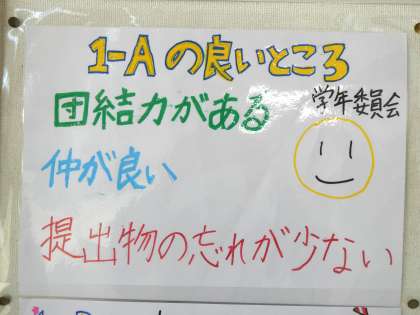 1-Aの良いところ
団結力がある
学年委員会
仲が良い
提出物の忘れが少ない